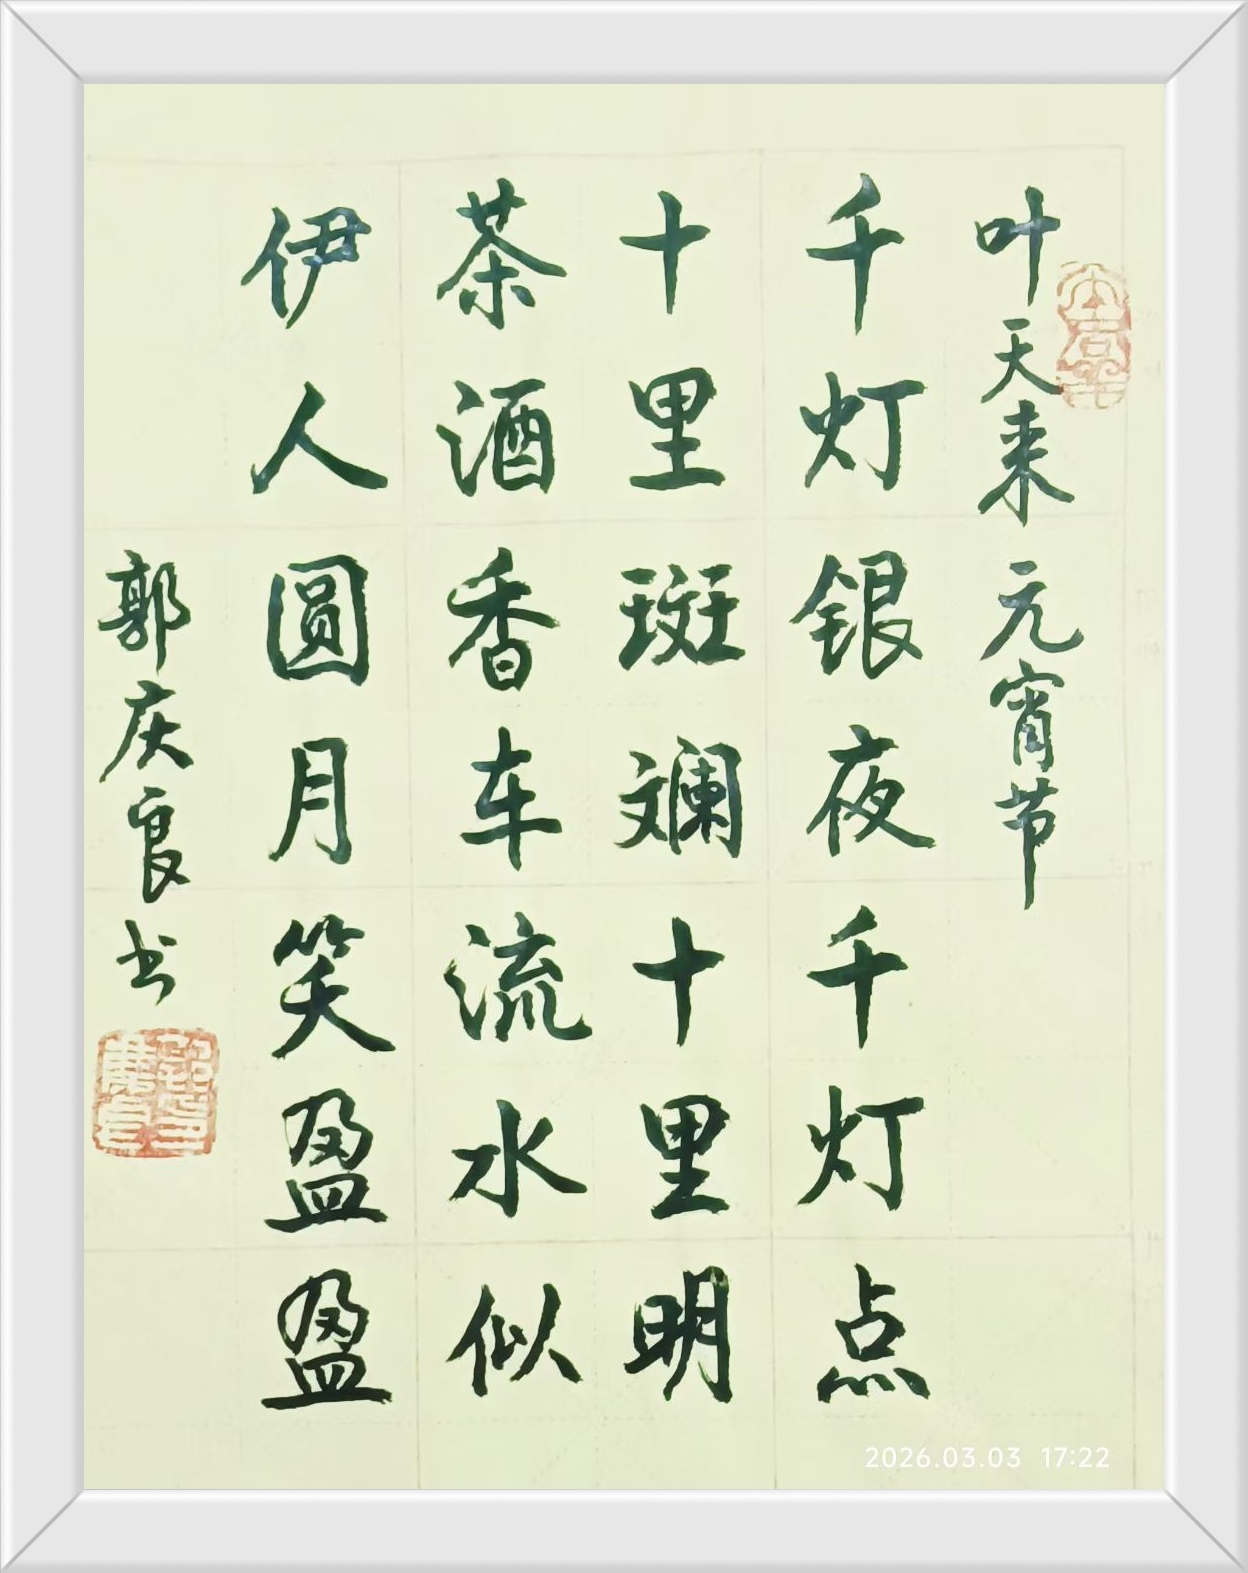 叶天来 元宵节
千灯银夜千灯点
十里斑斓十里明
茶酒香车流水似
伊人圆月笑盈盈
郭庆良书
2026.03.03 17:22